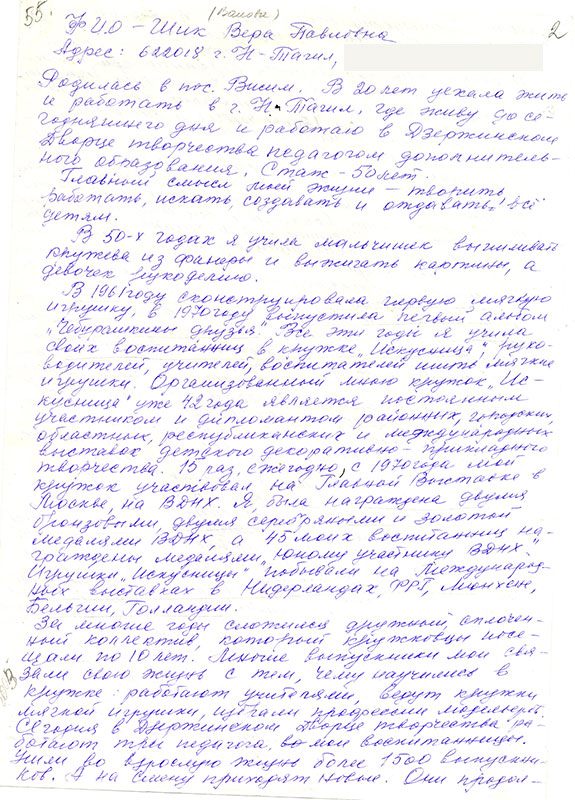 55.
(Ванова)
2
ФИО - Шик Вера Павловна
Адрес: 622018 г. Н-Тагил,
Родилась в пос. Висим. В 20 лет уехала жить
и работать в г. Н-Тагил, где живу до се-
годняшнего дня и работаю в Дзержинском
Дворце творчества педагогом дополнитель-
ного образования. Стаж - 50 лет.
Главный смысл моей жизни - творить
работать, искать, создавать и отдавать всё
детям.
В 50-х годах я учила мальчишек выпиливать
кружева из фанеры и выжигать картины, а
девочек рукоделию.
В 1961 году сконструировала первую мягкую
игрушку, в 1970 году выпустила первый альбом
"Чебурашкины друзья". Все эти годы я учила
своих воспитанниц в кружке "Искусница", руко-
водителей, учителей, воспитателей шить мягкие
игрушки. Организованный мною кружок "Ис-
кусница" уже 42 года является постоянным
участником и дипломантом районных, городских,
областных, республиканских и международных
выставок детского декоративно-прикладного
творчества. 15 раз, ежегодно, с 1970 года мой
кружок участвовал на Главной Выставке в
Москве, на ВДНХ. Я была награждена двумя
бронзовыми, двумя серебряными и золотой
медалями ВДНХ, а 45 моих воспитанниц на-
граждены медалями "Юному участнику ВДНХ."
Игрушки "Искусницы" побывали на Международ-
ных выставках в Нидерландах, ФРГ, Мюнхене,
Бельгии, Голландии.
За многие годы сложился дружный, сплочен-
ный коллектив, который кружковцы посе-
щали по 10 лет. Многие выпускники мои свя-
зали свою жизнь с тем, чему научились в
кружке: работают учителями, ведут кружки
мягкой игрушки, избрали профессии модельера.
Сегодня в Дзержинском Дворце творчества ра-
ботают три педагога, мои воспитанницы.
Ушли во взрослую жизнь более 1500 выпускни-
ков. А на смену приходят новые. Они продол-